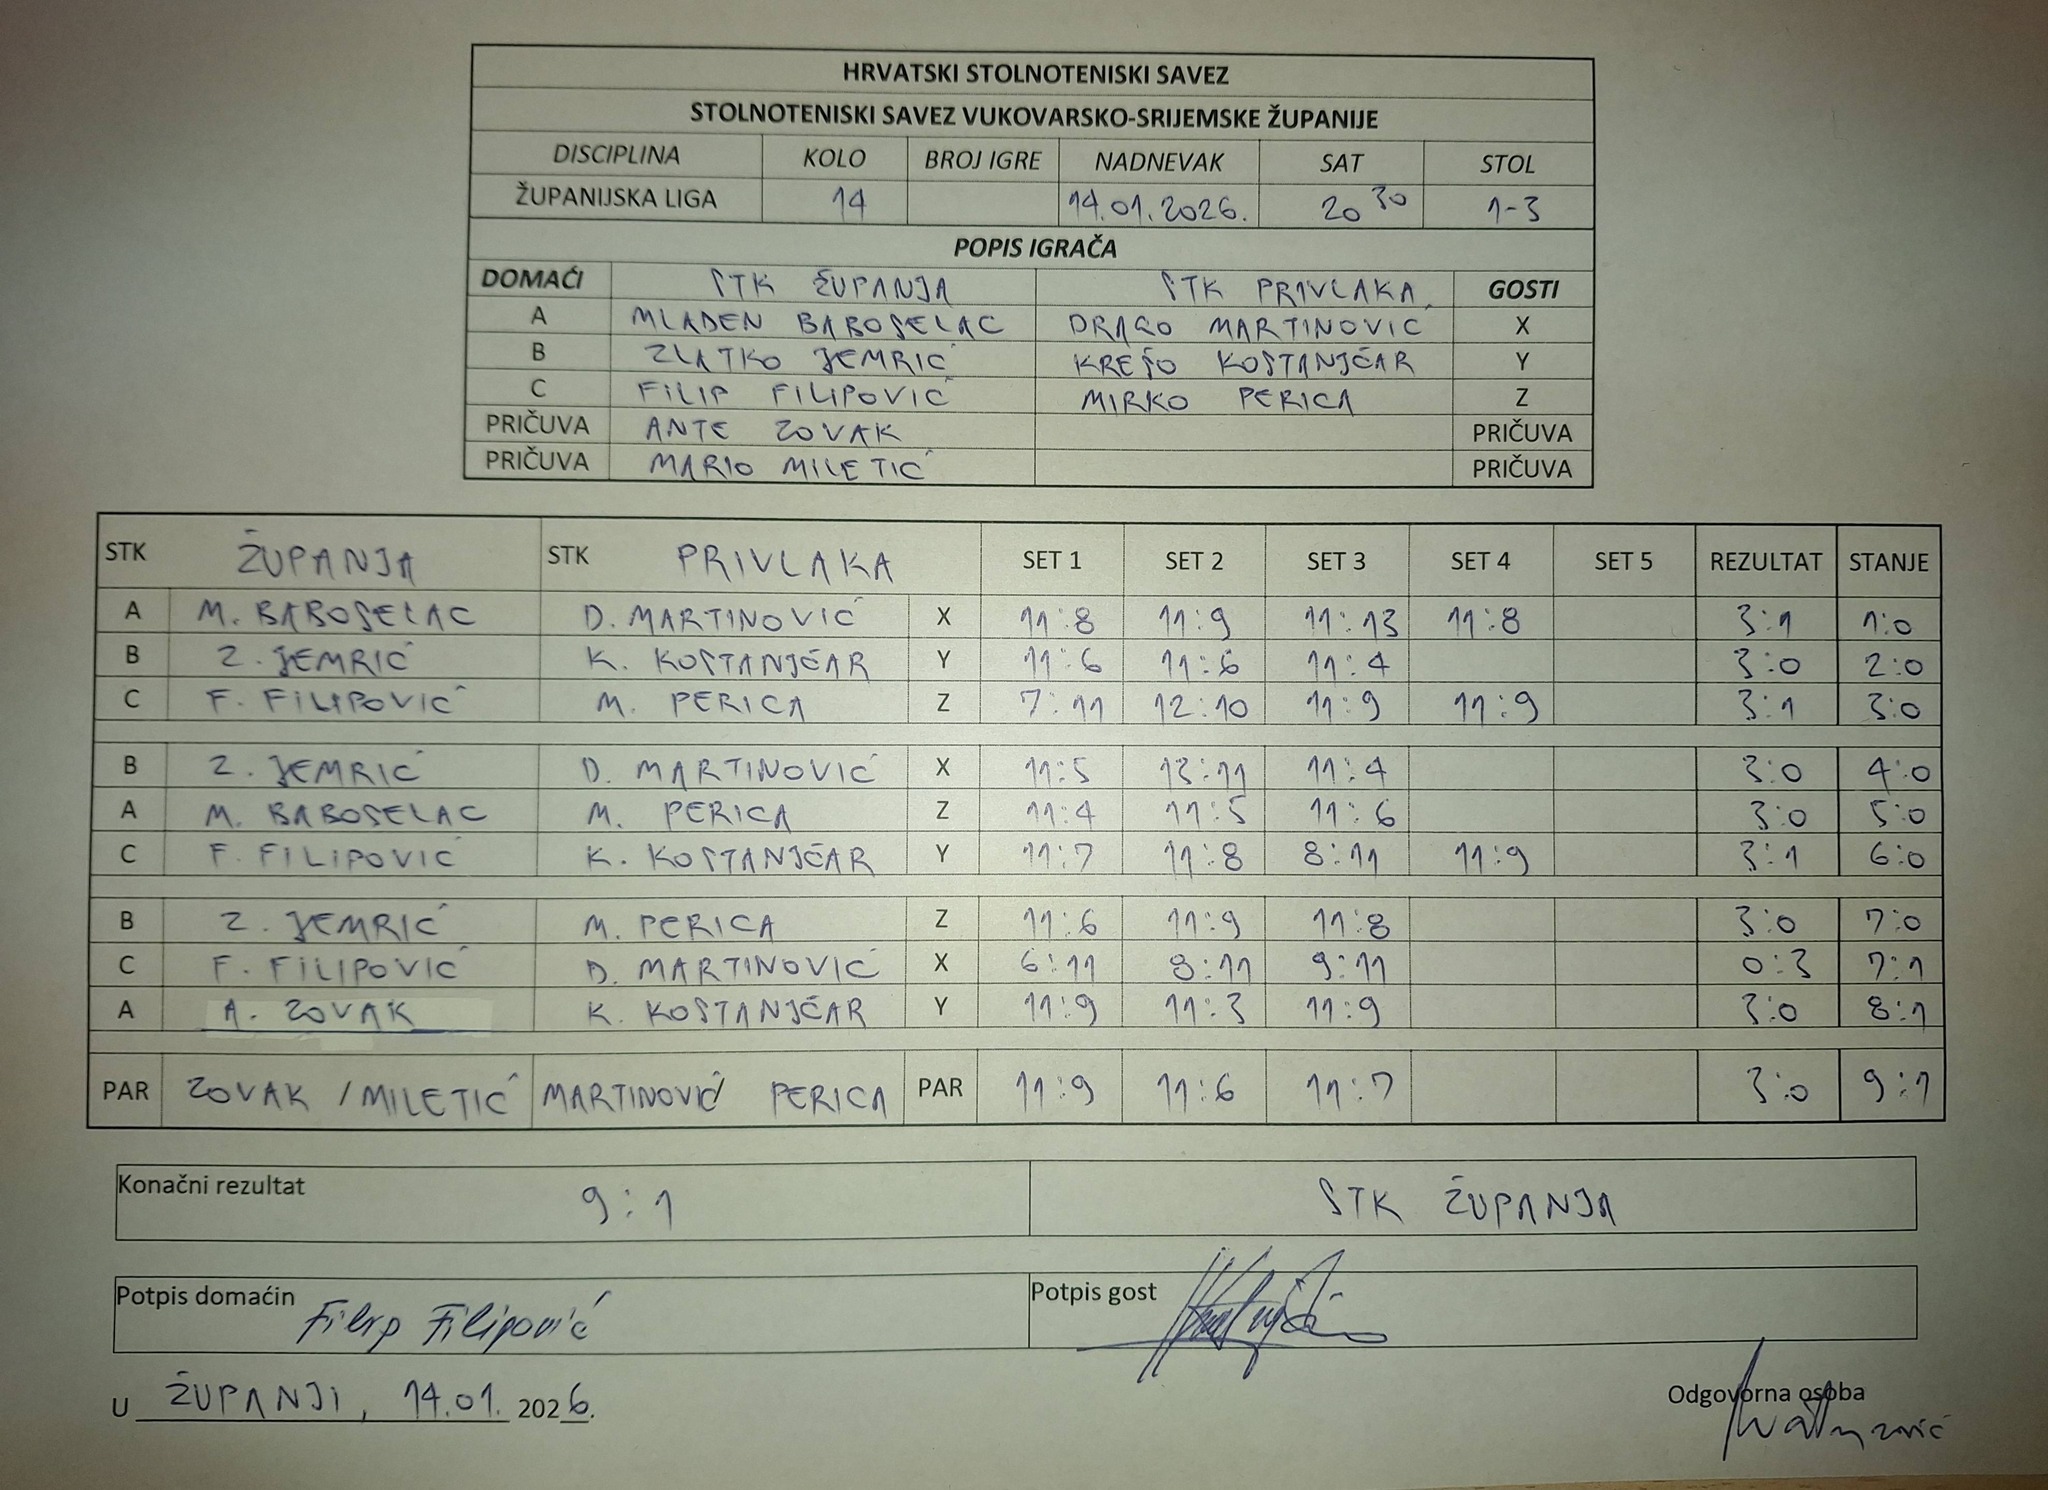 HRVATSKI STOLNOTENISKI SAVEZ
STOLNOTENISKI SAVEZ VUKOVARSKO-SRIJEMSKE ŽUPANIJE
DISCIPLINA KOLO BROJ IGRE NADNEVAK SAT STOL
ŽUPANIJSKA LIGA 14 14.01.2026. 20 30 1-3
POPIS IGRAČA
DOMAĆI STK ŽUPANJA STK PRIVLAKA GOSTI
A MLADEN BABOSELAC DRAGO MARTINOVIĆ X
B ZLATKO JEMRIĆ KREŠO KOSTANJČAR Y
C FILIP FILIPOVIĆ MIRKO PERICA Z
PRIČUVA ANTE ZOVAK PRIČUVA
PRIČUVA MARIO MILETIĆ PRIČUVA
STK ŽUPANJA STK PRIVLAKA SET 1 SET 2 SET 3 SET 4 SET 5 REZULTAT STANJE
A M. BABOSELAC D. MARTINOVIĆ X 11:8 11:9 11:13 11:8 3:1 1:0
B Z. JEMRIĆ K. KOSTANJČAR Y 11:6 11:6 11:4 3:0 2:0
C F. FILIPOVIĆ M. PERICA Z 7:11 12:10 11:9 11:9 3:1 3:0
B Z. JEMRIĆ D. MARTINOVIĆ X 11:5 13:11 11:4 3:0 4:0
A M. BABOSELAC M. PERICA Z 11:4 11:5 11:6 3:0 5:0
C F. FILIPOVIĆ K. KOSTANJČAR Y 11:7 11:8 8:11 11:9 3:1 6:0
B Z. JEMRIĆ M. PERICA Z 11:6 11:9 11:8 3:0 7:0
C F. FILIPOVIĆ D. MARTINOVIĆ X 6:11 8:11 9:11 0:3 7:1
A A. ZOVAK K. KOSTANJČAR Y 11:9 11:3 11:9 3:0 8:1
PAR ZOVAK / MILETIĆ MARTINOVIĆ/ PERICA PAR 11:9 11:6 11:7 3:0 9:1
Konačni rezultat 9:1 STK ŽUPANJA
Potpis domaćin Filip Filipović Potpis gost
U ŽUPANJI, 14.01. 2026.
Odgovorna osoba